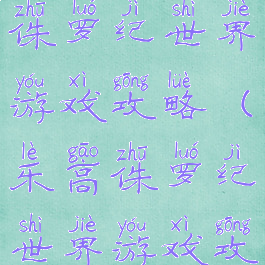 zhū luó jì shì jiè
侏罗纪世界
yóu xì gōng lüè
游戏攻略（
lè gāo zhū luó jì
乐高侏罗纪
shì jiè yóu xì gōng
世界游戏攻